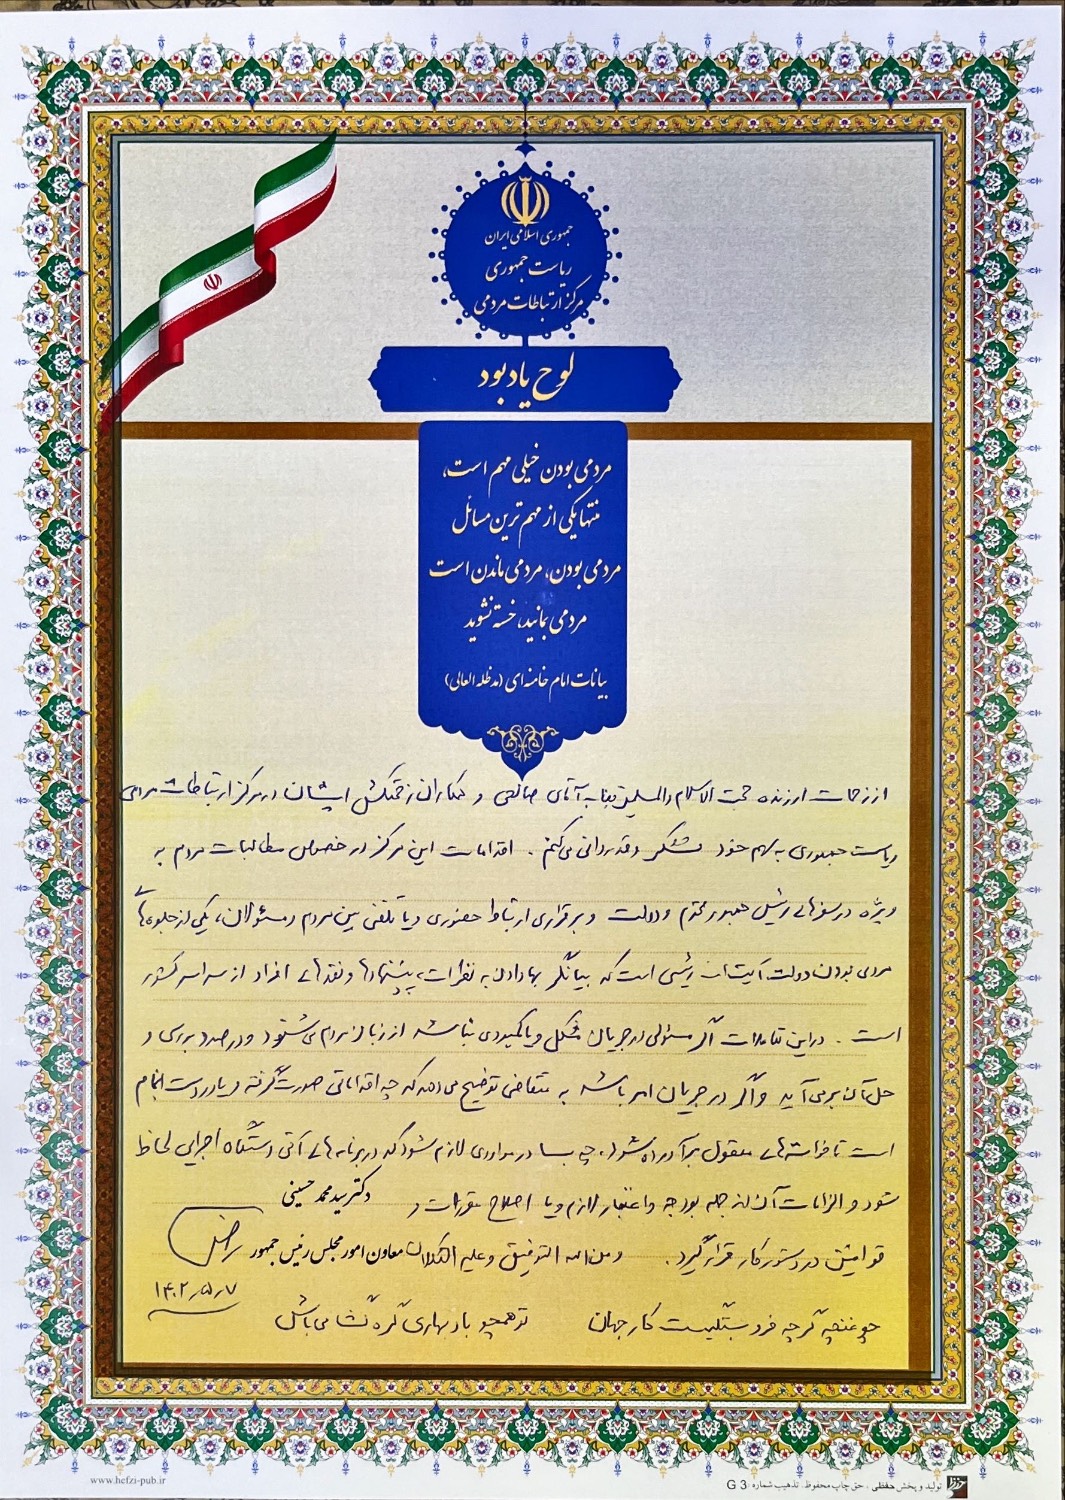 جمهوری اسلامی ایران
ریاست جمهوری
مرکز ارتباطات مردمی
لوح یادبود
مردمی بودن خیلی مهم است،
منتها یکی از مهم ترین مسائل
مردمی بودن، مردمی ماندن است
مردمی بمانید، خسته نشوید
بیانات امام خامنه ای (مدظله العالی)
از زحمات ارزنده حجت الاسلام والمسلمین جناب آقای صالحی و همکاران زحمتکش ایشان در مرکز ارتباطات مردمی
ریاست جمهوری به سهم خود تشکر و قدردانی می کنم. اقدامات این مرکز در خصوص مطالبات مردم به
ویژه در سفرهای رئیس جمهور محترم و دولت و برقراری ارتباط حضوری و یا تلفنی بین مردم و مسئولان، یکی از جلوه های
مردمی بودن دولت آیت الله رئیسی است که بیانگر بها دادن به نظرات، پیشنهادها و نقدهای افراد از سراسر کشور
است. در این تعاملات اگر مسئولی در جریان مشکل و یا کمبودی نباشد از زبان مردم می شنود و درصدد بررسی و
حل آن برمی آید و اگر در جریان امر باشد به متقاضی توضیح می دهد که چه اقداماتی صورت گرفته و یا در دست انجام
است تا خواسته های معقول برآورده شود. چه بسا در مواردی لازم شود که در برنامه های آتی دستگاه اجرایی لحاظ
شود و الزامات آن از جمله بودجه و اعتبار لازم و یا اصلاح مقررات و
قوانین در دستور کار قرار گیرد. و من الله التوفیق و علیه التکلان
دکتر سید محمد حسینی
معاون امور مجلس رئیس جمهور
۱۴۰۲/۵/۷
چو غنچه گرچه فروبستگیست کار جهان تو همچو باد بهاری گره گشا می باش
www.hefzi-pub.ir
تولید و پخش حفظی، حق چاپ محفوظ، تذهیب شماره G 3